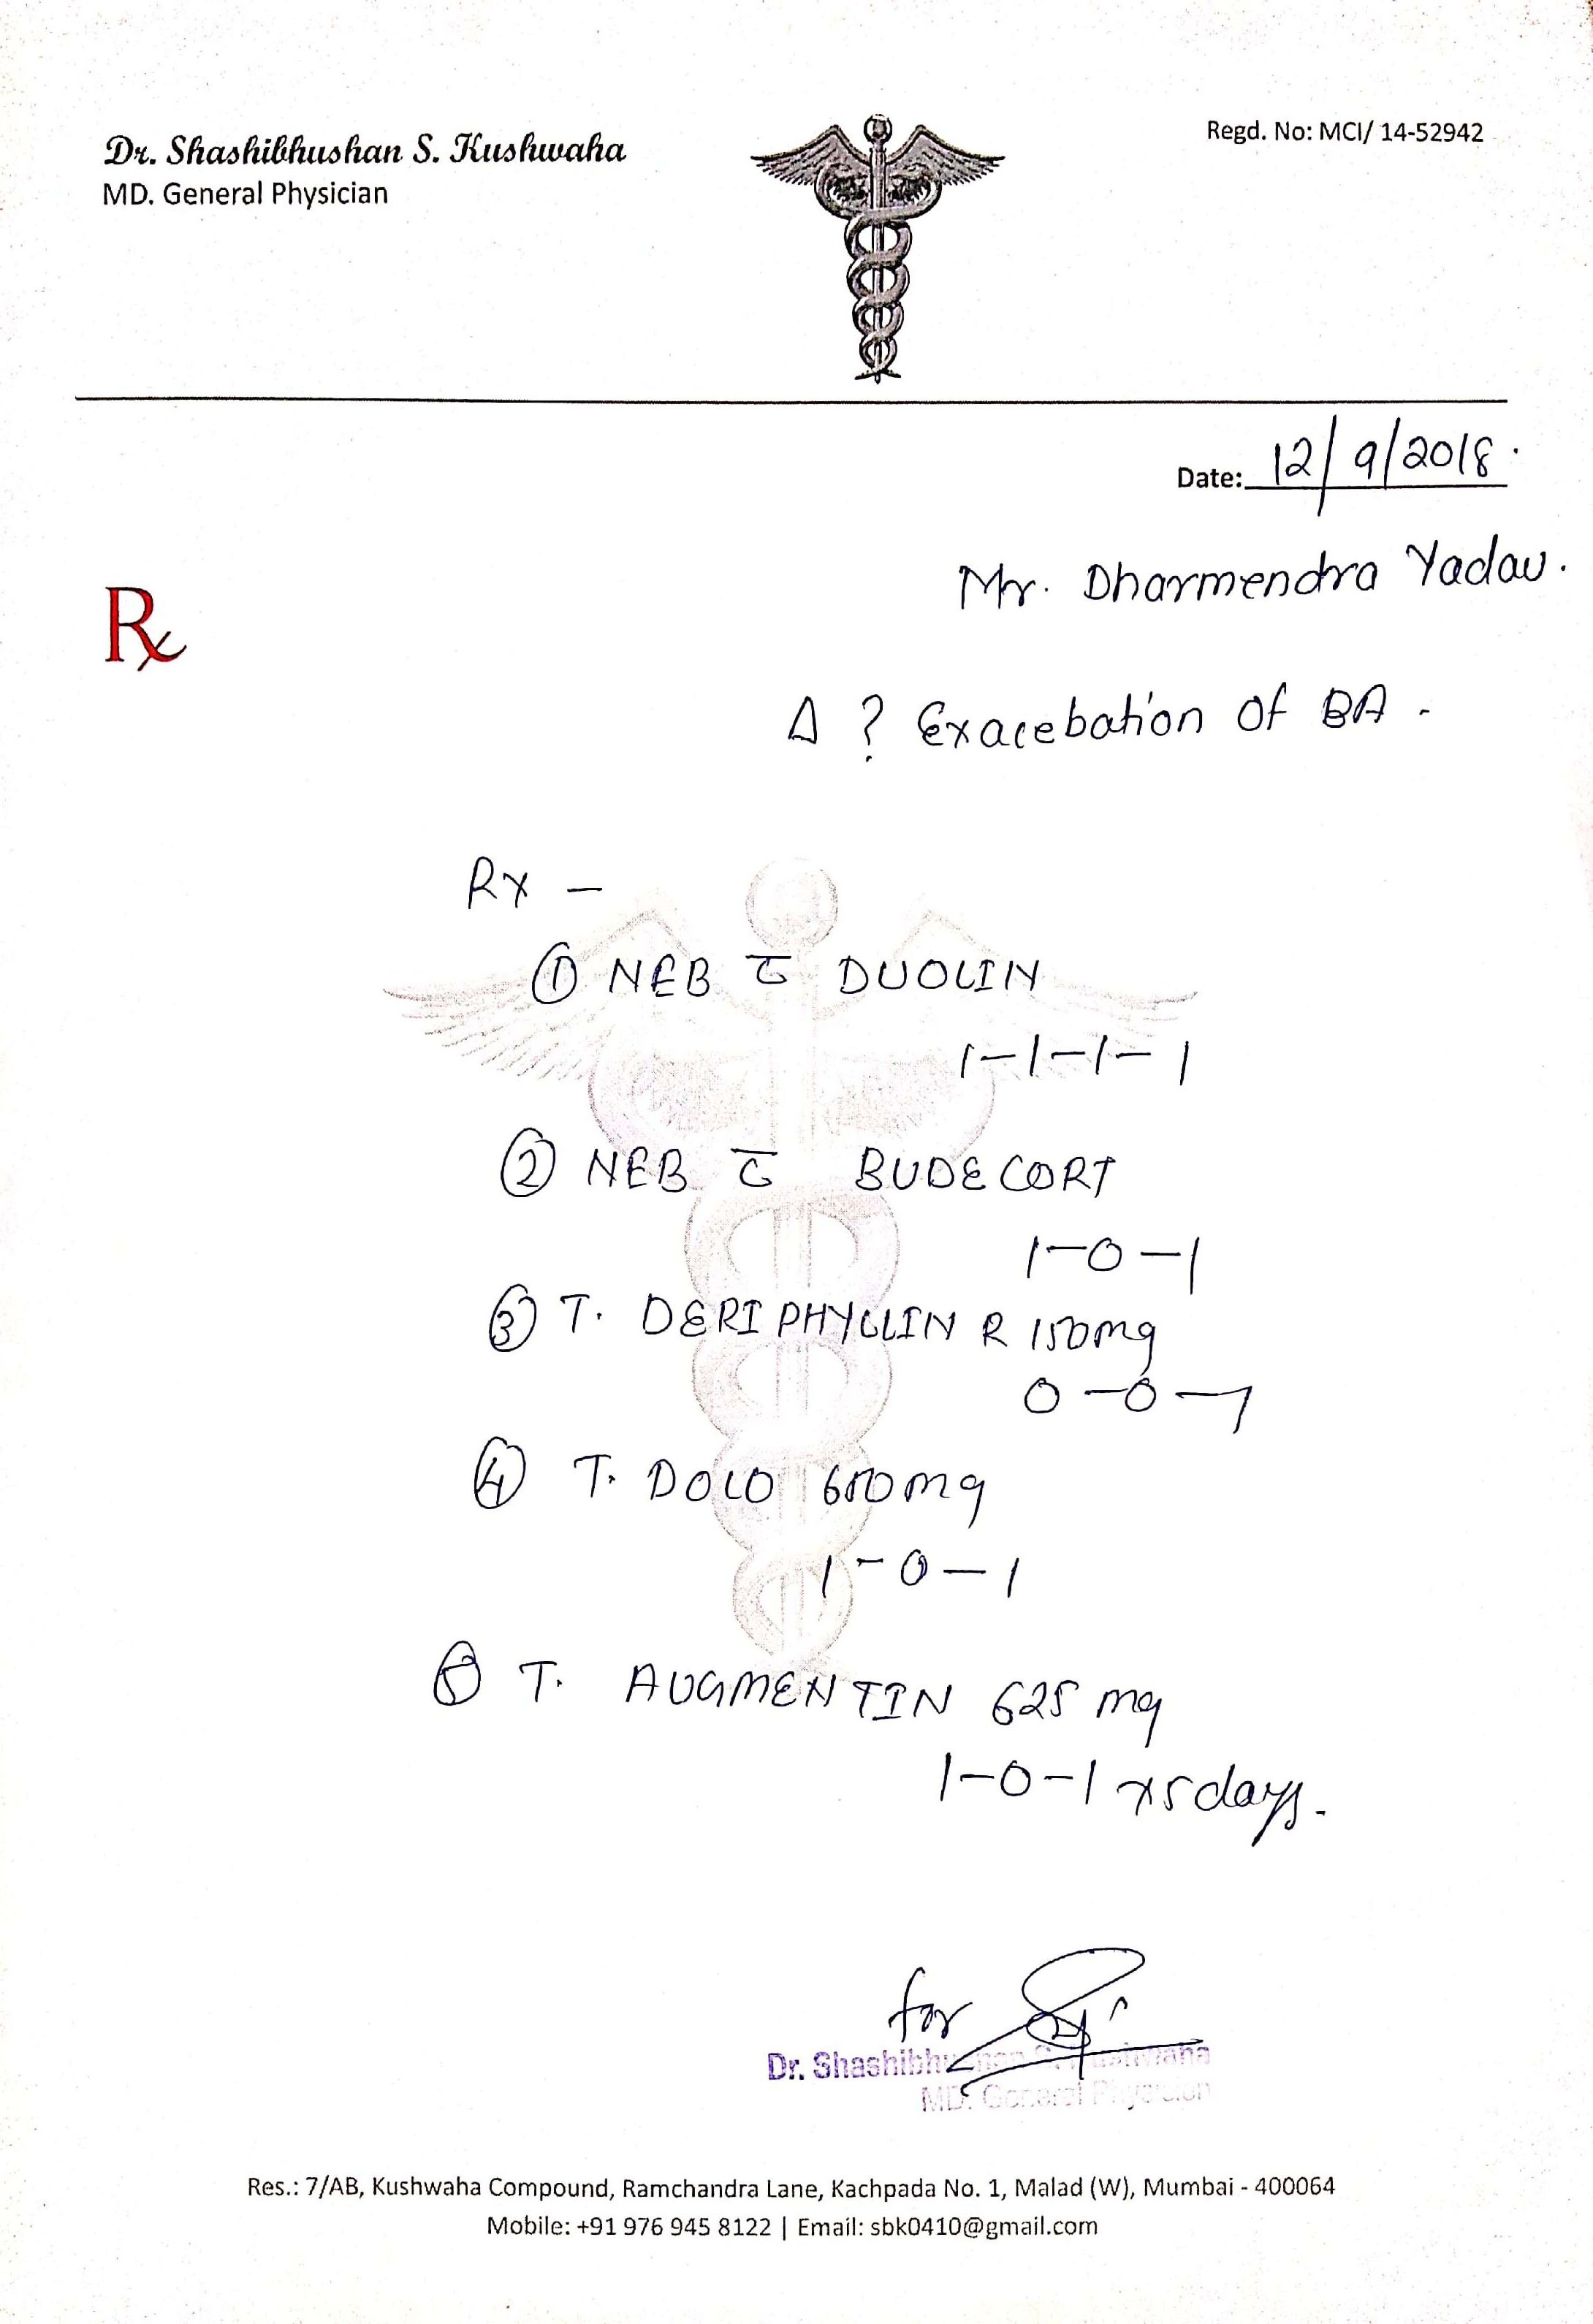 Dr. Shashibhushan S. Kushwaha
MD. General Physician
Regd. No: MCI/ 14-52942
Date: 12/9/2018.
Mr. Dharmendra Yadav.
Rx
Δ ? Exacebation of BA -
Rx -
① NEB c̅ DUOLIN
1-1-1-1
② NEB c̅ BUDECORT
1-0-1
③ T. DERIPHYLLIN R 150mg
0-0-1
④ T. DOLO 650mg
1-0-1
⑤ T. AUGMENTIN 625 mg
1-0-1 x5days.
for
Dr. Shashibhushan S. Kushwaha
MD. General Physician
Res.: 7/AB, Kushwaha Compound, Ramchandra Lane, Kachpada No. 1, Malad (W), Mumbai - 400064
Mobile: +91 976 945 8122 | Email: sbk0410@gmail.com